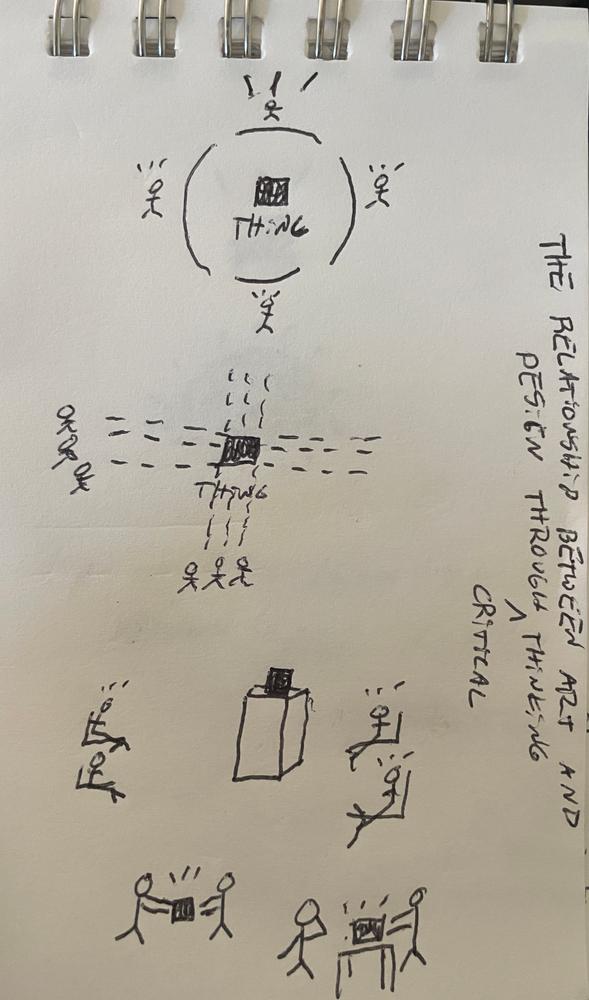 THING
THING
THE RELATIONSHIP BETWEEN ART AND
DESIGN THROUGH ^ THINKING
CRITICAL